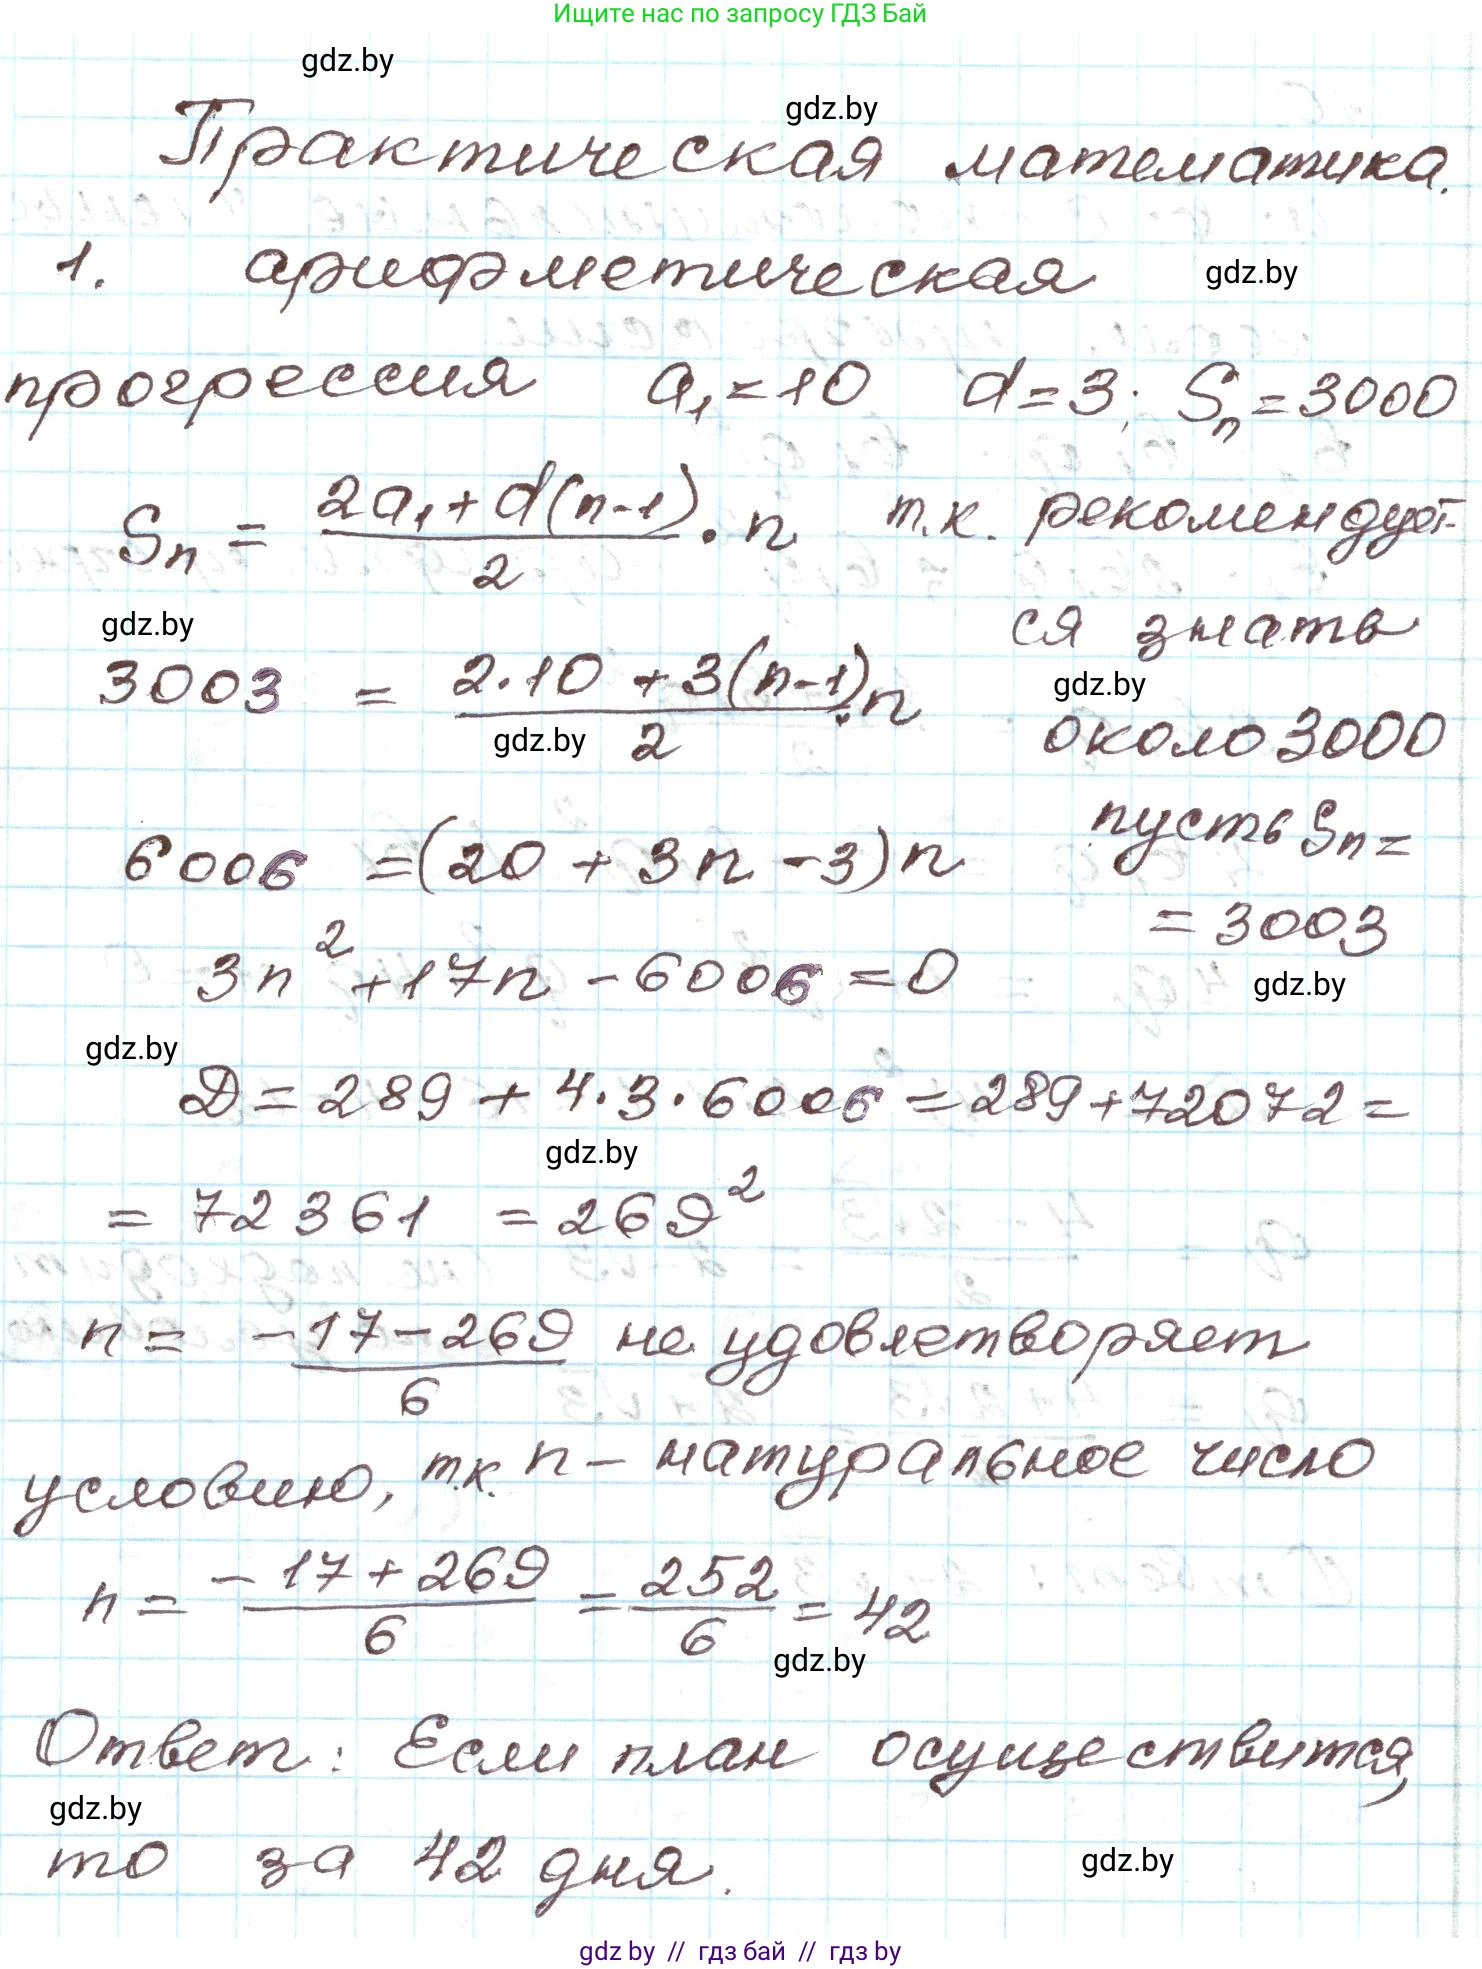 Ищите нас по запросу ГДЗ Бай
gdz.by
gdz.by
Практическая математика.
1. арифметическая
gdz.by
прогрессия a₁=10 d=3; Sₙ=3000
Sₙ = (2a₁+d(n-1))/2 · n т.к. рекомендует-
ся знать
gdz.by
gdz.by
3003 = (2·10+3(n-1))/2 · n
gdz.by
около 3000
пусть Sₙ=
6006 =(20 + 3n -3)n
= 3003
3n²+17n -6006=0
gdz.by
gdz.by
D=289 + 4·3·6006=289+72072=
gdz.by
= 72361 = 269²
n = (-17-269)/6 не удовлетворяет
условию, т.к. n - натуральное число
n = (-17+269)/6 = 252/6 = 42
gdz.by
Ответ: Если план осуществится,
gdz.by
то за 42 дня.
gdz.by
gdz by // гдз бай // гдз by